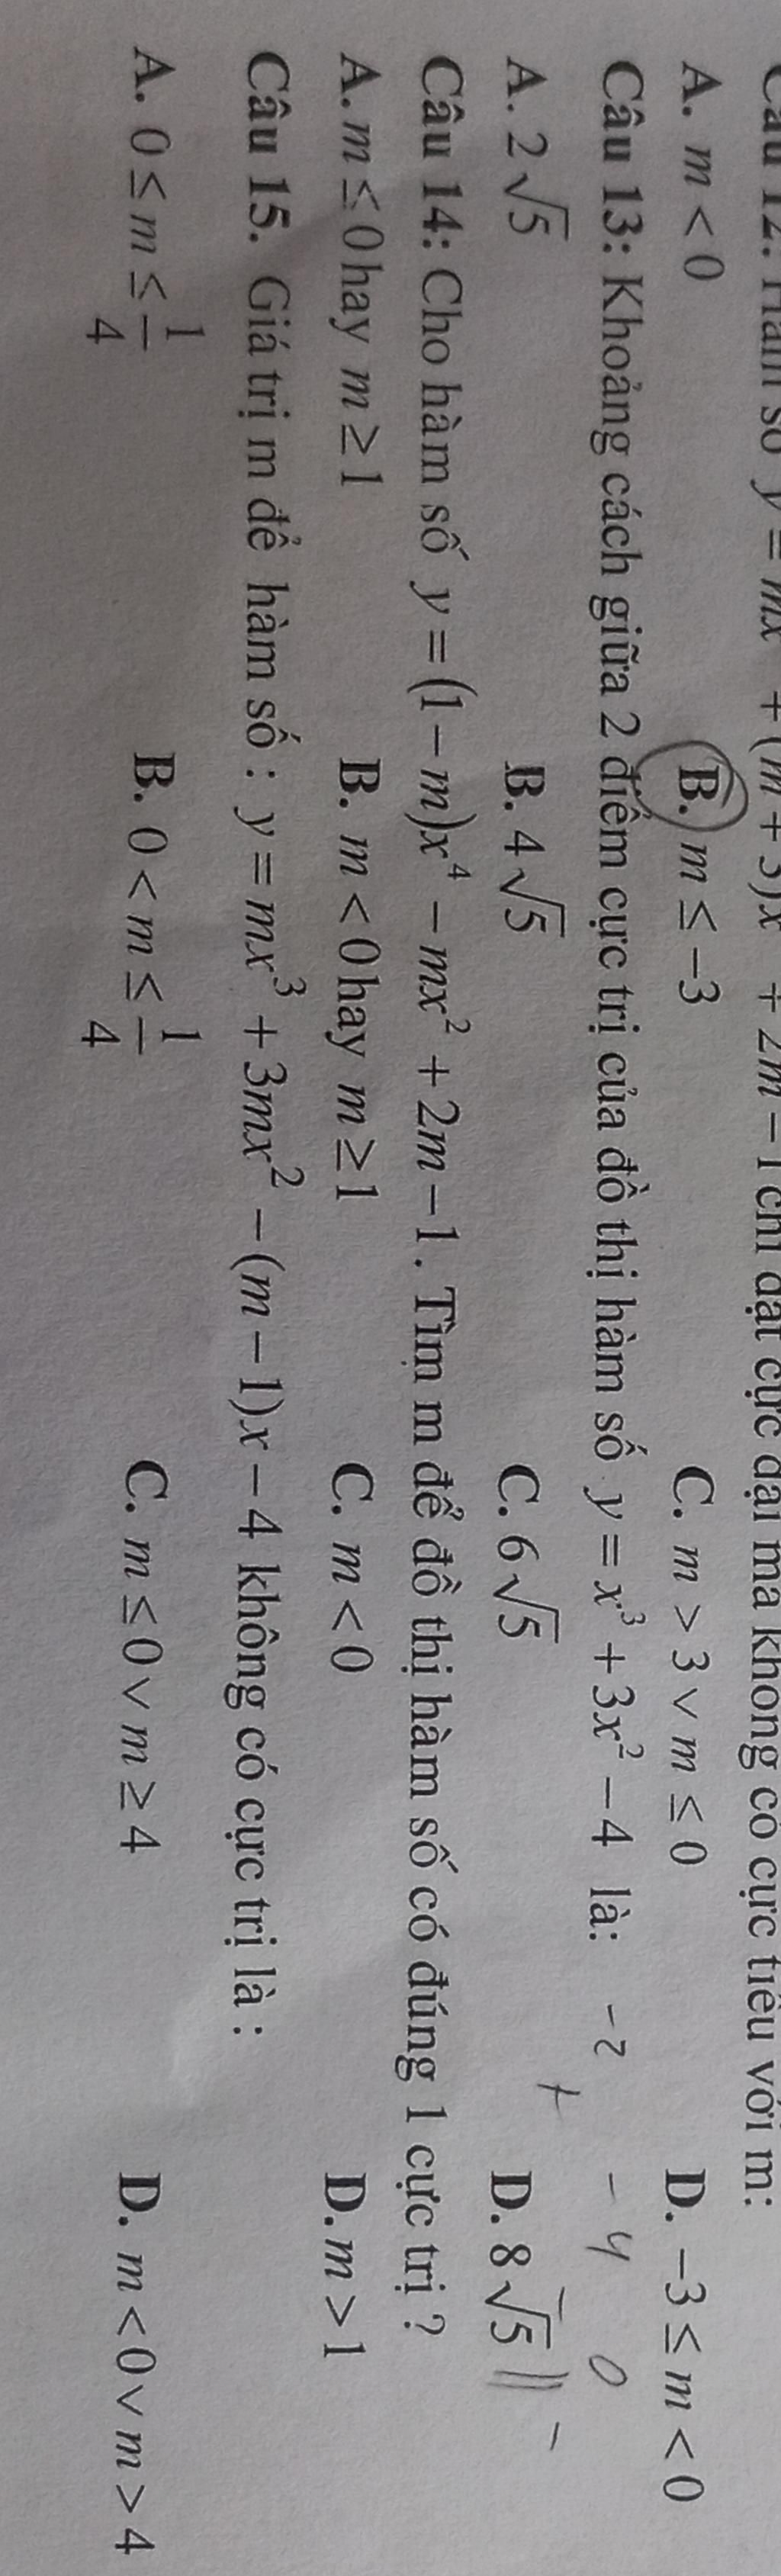 Câu 12. Hàm số y = mx + (m + 3)x + 2m - 1 chỉ đạt cực đại mà không có cực tiểu với m:
A. m < 0 B. m ≤ -3 C. m > 3 ∨ m ≤ 0 D. -3 ≤ m < 0
Câu 13: Khoảng cách giữa 2 điểm cực trị của đồ thị hàm số y = x³ + 3x² - 4 là: -2 -4 0
A. 2√5 B. 4√5 C. 6√5 D. 8√5
Câu 14: Cho hàm số y = (1 - m)x⁴ - mx² + 2m - 1. Tìm m để đồ thị hàm số có đúng 1 cực trị ?
A. m ≤ 0 hay m ≥ 1 B. m < 0 hay m ≥ 1 C. m < 0 D. m > 1
Câu 15. Giá trị m để hàm số : y = mx³ + 3mx² - (m - 1)x - 4 không có cực trị là :
A. 0 ≤ m ≤ 1/4 B. 0 < m ≤ 1/4 C. m ≤ 0 ∨ m ≥ 4 D. m < 0 ∨ m > 4